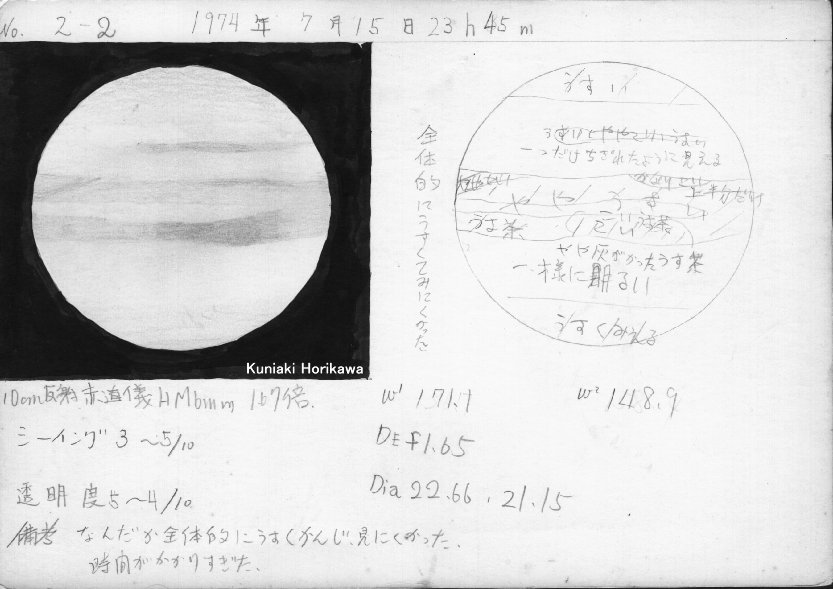 No. 2-2 1974年 7月15日23h45m
うすい
一つだけちぎれたように見える
やや うす
上半分だけ
うす茶
やや灰がかったうす茶
一様に明るい
うすくみえる
全体的にうすくてみにくかった
Kuniaki Horikawa
10cm反射赤道儀HM6mm 167倍.
シーイング3～5/10
透明度5～4/10
備考 なんだか全体的にうすくかんじ、見にくかった.
時間がかかりすぎた.
W¹ 171.7 W² 148.9
DE+1.65
Dia 22.66 . 21.15